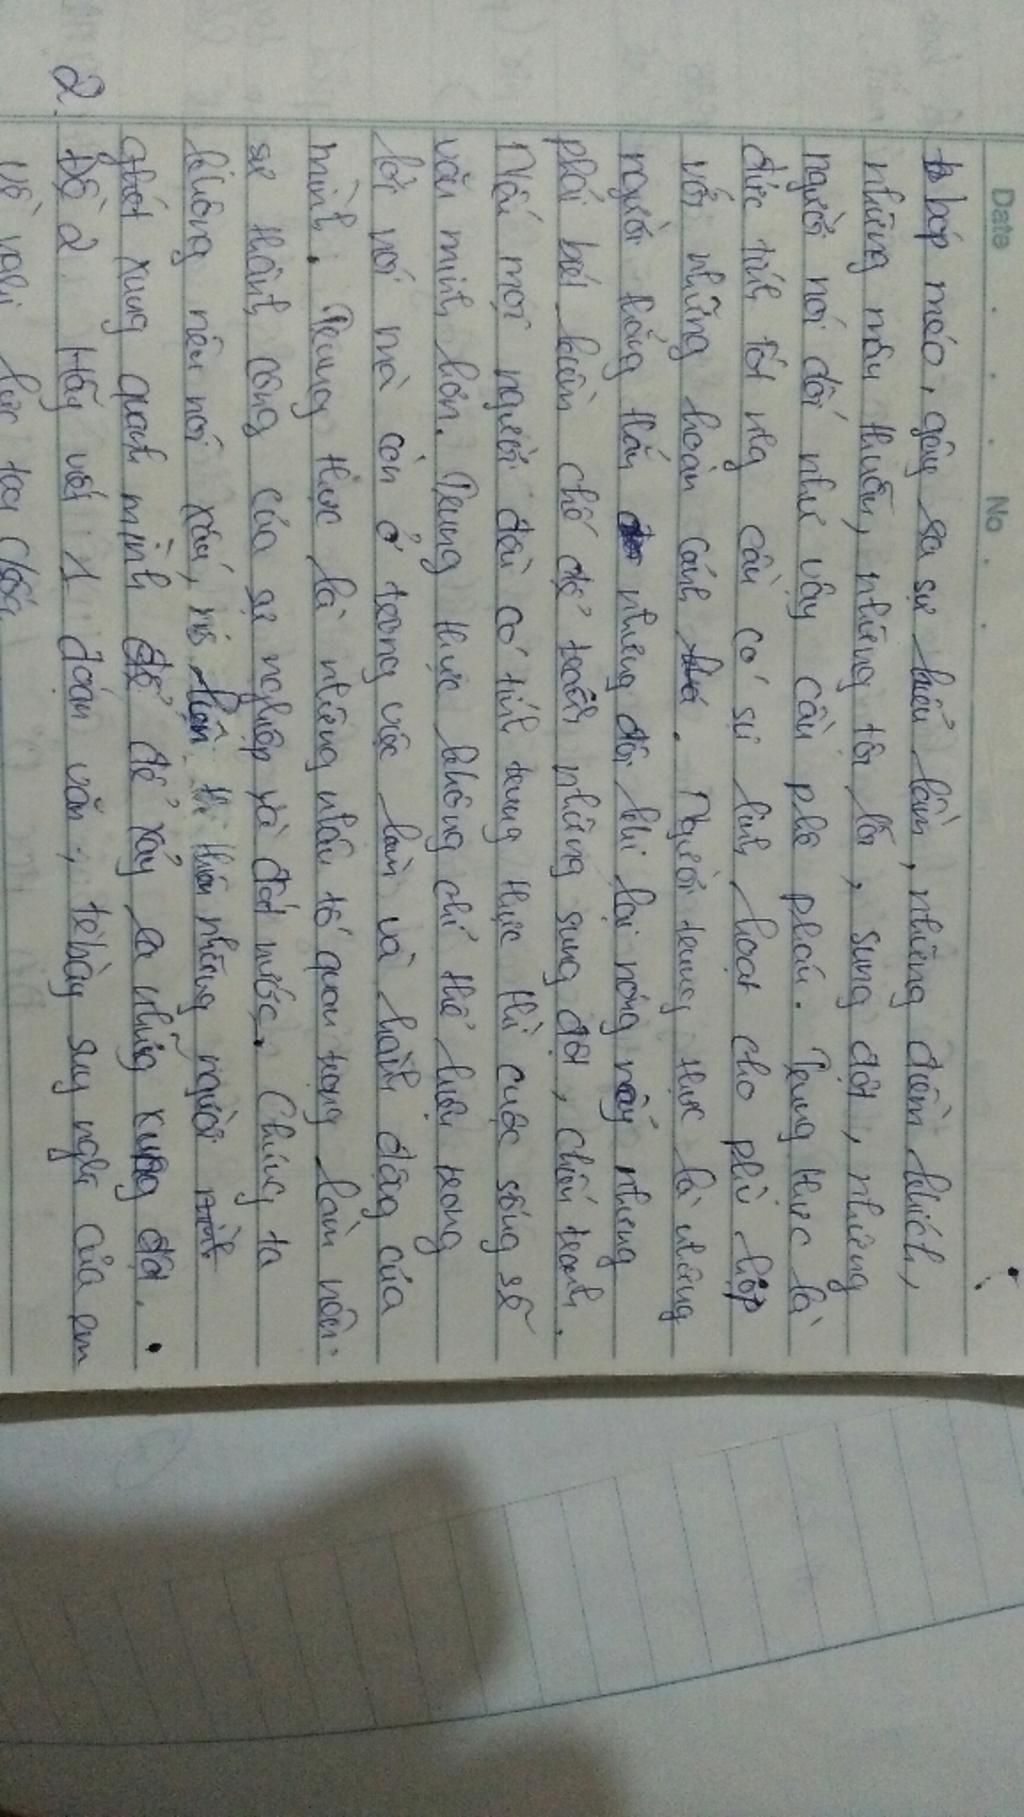 Date No
bóp méo, gây ra sự hiểu lầm, những điềm khích,
những mâu thuẫn, những tội lỗi, sung đột, những
người nói dối như vậy cần phê phán. Trung thực là
đức tính tốt nhg cần có sự linh hoạt cho phù hợp
với những hoàn cảnh. Người trung thực là những
người thẳng thắn nhưng đôi khi lại nóng nảy nhưng
phải biết kiềm chế để tránh những sung đột, chiến tranh.
Nếu mọi người đều có tính trung thực thì cuộc sống sẽ
văn minh hơn. Trung thực không chỉ thể hiện trong
lời nói mà còn ở trong việc làm và hành động của
mình. Trung thực là những nhân tố quan trọng làm nên
sự thành công của sự nghiệp và đất nước. Chúng ta
không nên nói xấu, những người
xung quanh mình để xảy ra những xung đột.
2. Đề 2 Hãy viết 1 đoạn văn, tr bày suy nghĩ của em
về nghị lực